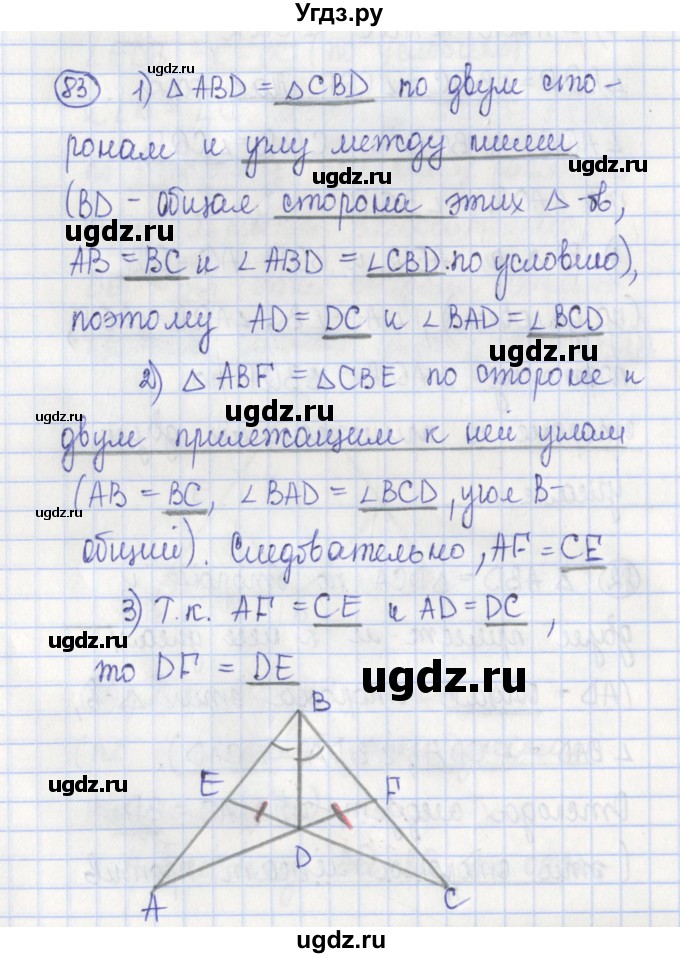 Угдз.ру
ugdz.ru
83 1) △ ABD = △CBD по двум сто-
ронам и углу между ними
ugdz.ru
(BD - общая сторона этих △-в,
ugdz.ru
ugdz.ru
AB = BC и ∠ABD = ∠CBD по условию),
ugdz.ru
поэтому AD = DC и ∠BAD = ∠BCD
ugdz.ru
2) △ ABF = △CBE по стороне и
ugdz.ru
ugdz.ru
двум прилежащим к ней углам
(AB = BC, ∠BAD = ∠BCD, угол B-
ugdz.ru
ugdz.ru
общий). Следовательно, AF = CE
3) Т.к. AF = CE и AD = DC,
ugdz.ru
ugdz.ru
то DF = DE
ugdz.ru
B
ugdz.ru
E
F
D
A
C
ugdz.ru
ugdz.ru